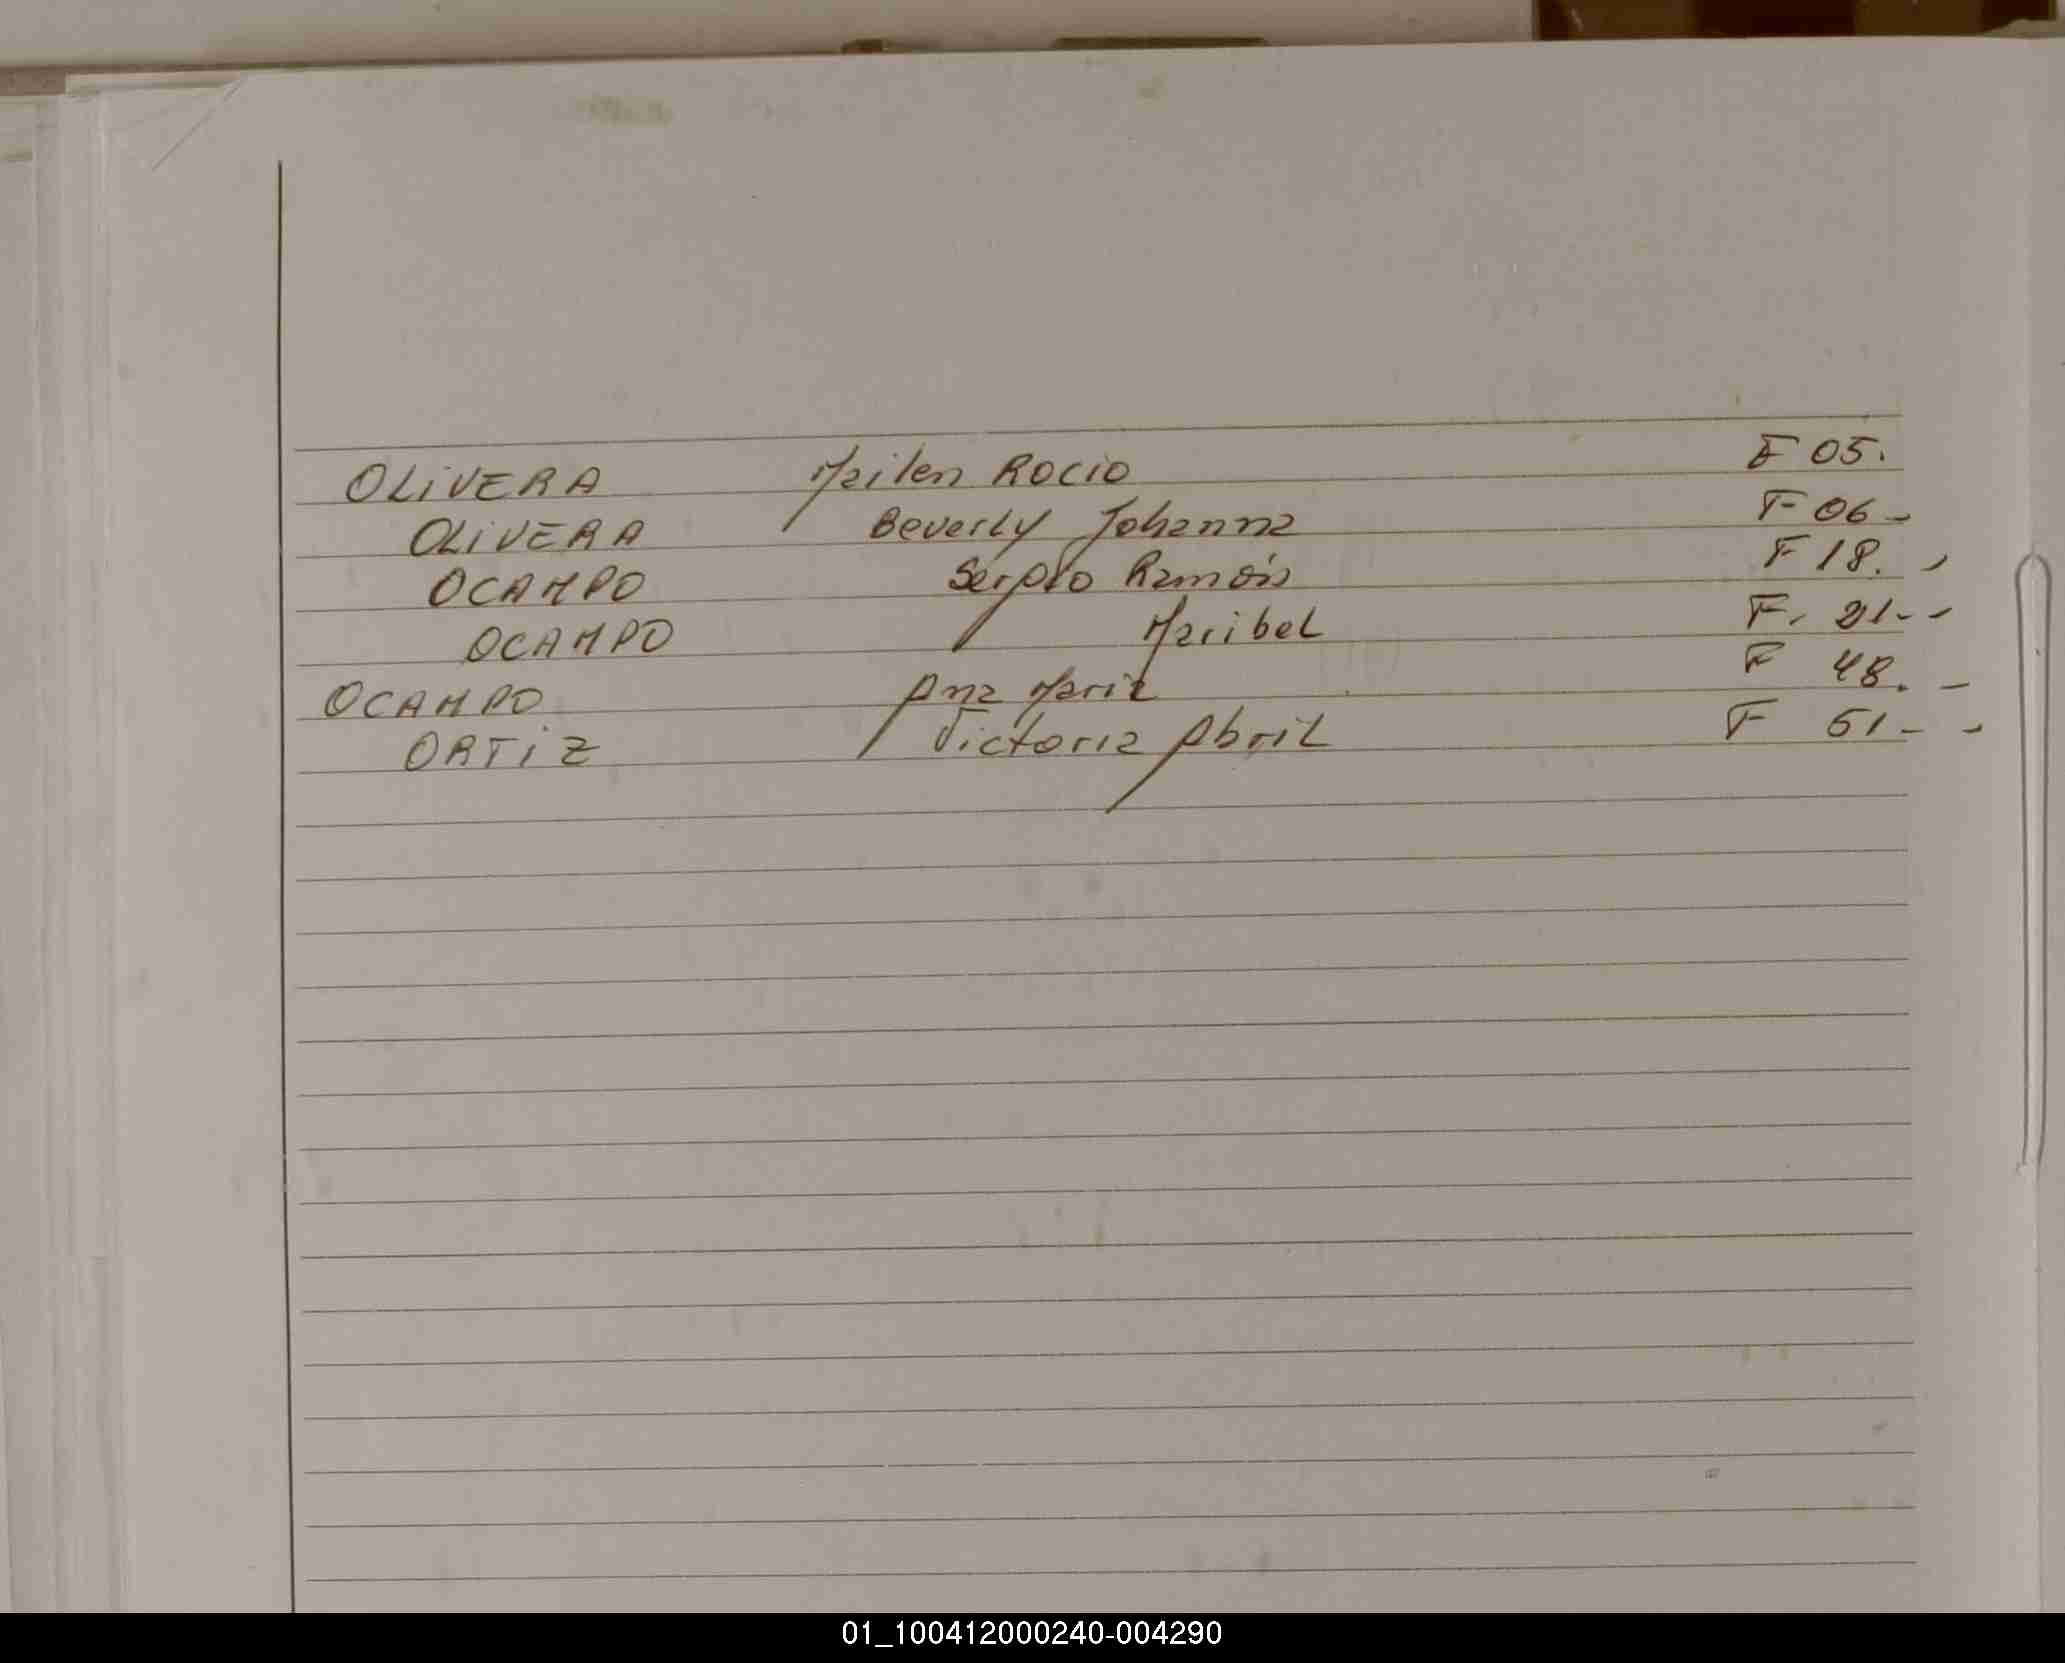 OLIVERA Mailen Rocio F 05.
OLIVERA Beverly Johanna F 06-
OCAMPO Sergio Ramón F 18.
OCAMPO Maribel F. 21--
OCAMPO Ana Maria F 48. -
ORTIZ Victoria Abril F 51- -
01_100412000240-004290